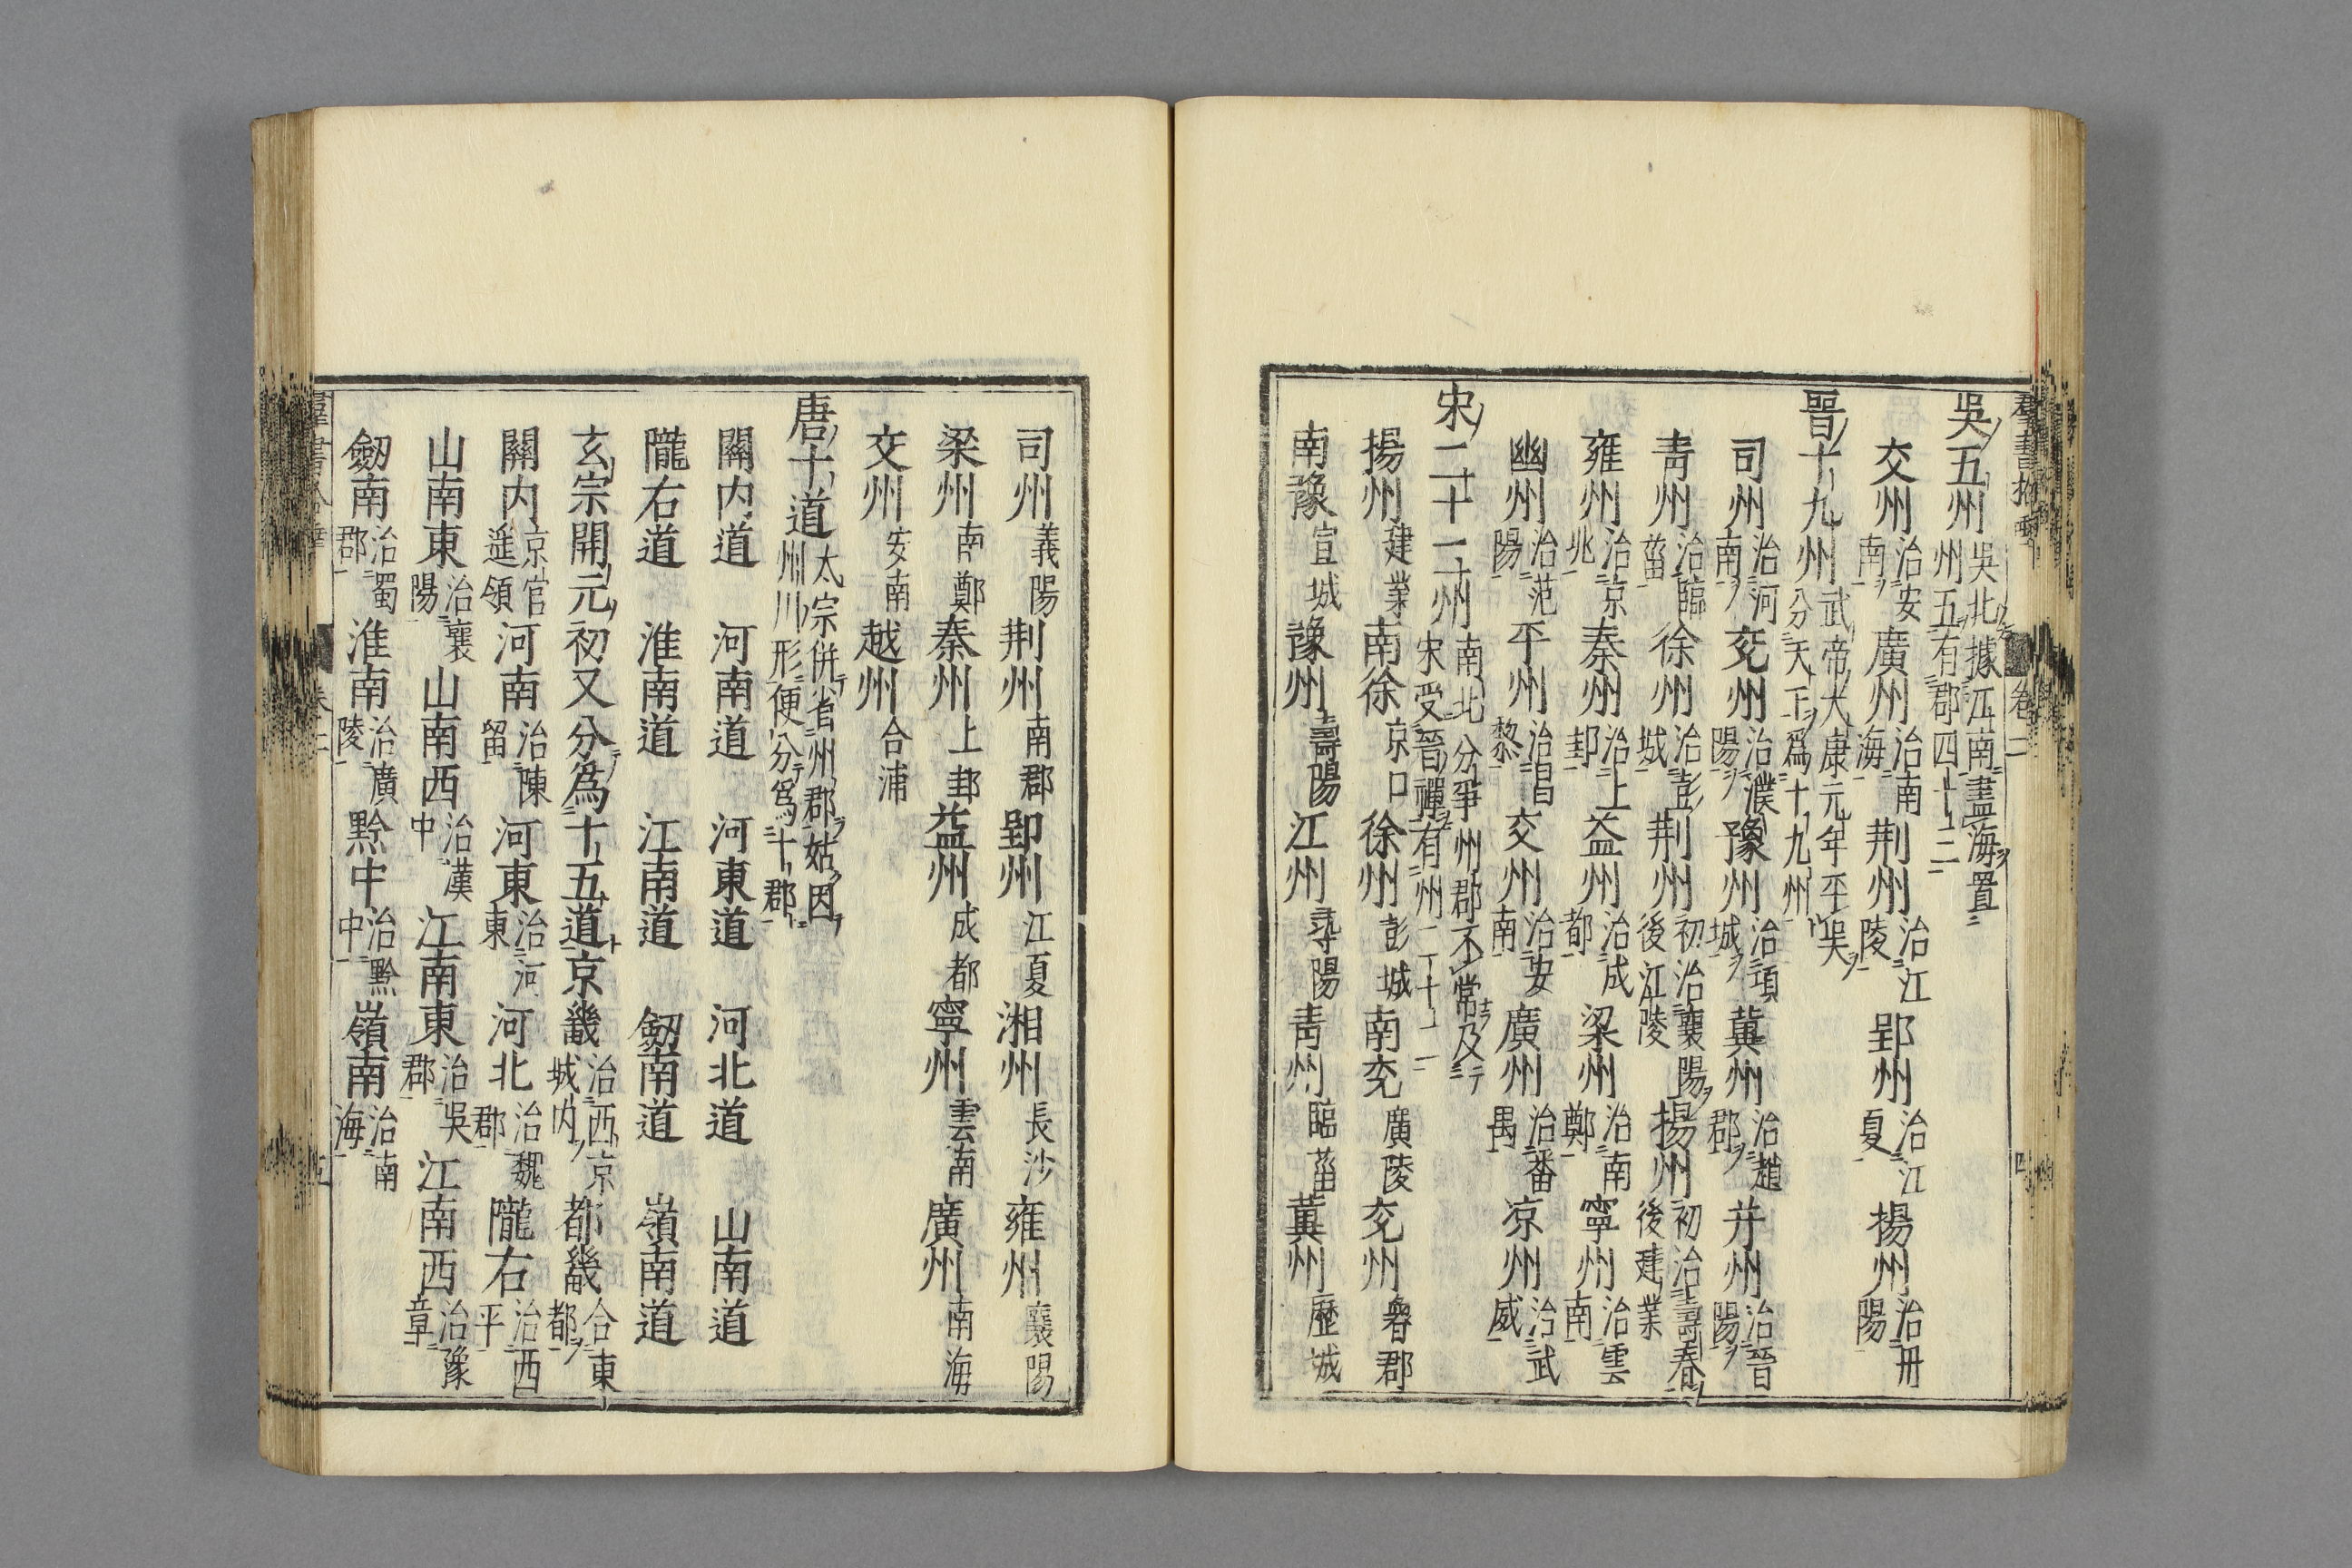 吳五州吳北據江南盡海置州五有郡四十三
交州治安南廣州治南海荆州治江陵郢州治江夏揚州治丹陽
晉十九州武帝大康元年平吳分天下爲十九州
司州治河南兗州治濮陽豫州治項城冀州治趙郡并州治晉陽
青州治臨菑徐州治彭城荆州初治襄陽後江陵揚州初治壽春後建業
雍州治京兆秦州治上邽益州治成都梁州治南鄭寧州治雲南
幽州治范陽平州治昌黎交州治安南廣州治番禺凉州治武威
宋二十二州南北分爭州郡不常及宋受晉禪有州二十二
揚州建業南徐京口徐州彭城南兗廣陵兗州魯郡
南豫宣城豫州壽陽江州尋陽青州臨菑冀州歷城
司州義陽荆州南郡郢州江夏湘州長沙雍州襄陽
梁州南鄭秦州上邽益州成都寧州雲南廣州南海
交州安南越州合浦
唐十道太宗併省州郡姑因州川形便分爲十郡
關内道 河南道 河東道 河北道 山南道
隴右道 淮南道 江南道 劒南道 嶺南道
玄宗開元初又分爲十五道京畿治西京城内都畿合東都
關内京官遥領河南治陳留河東治河東河北治魏郡隴右治西平
山南東治襄陽山南西治漢中江南東治吳郡江南西治豫章
劒南治蜀郡淮南治廣陵黔中治黔中嶺南治南海